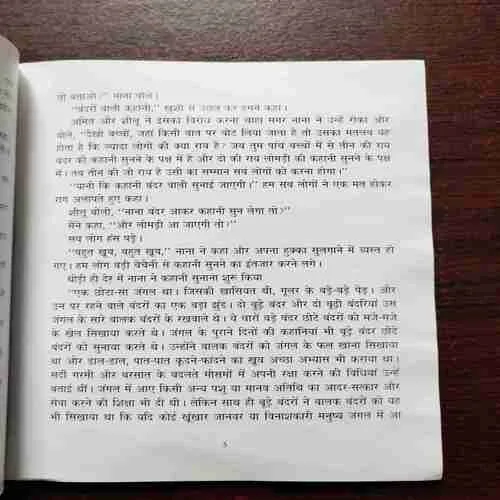 तो बताओ?" नाना बोले।
"बंदरों वाली कहानी," खुशी से उछल कर हमने कहा।
अमित और शीलू ने इसका विरोध करना चाहा मगर नाना ने उन्हें रोका और
बोले, "देखो बच्चों, जहां किसी बात पर वोट लिया जाता है तो उसका मतलब यह
होता है कि ज्यादा लोगों की क्या राय है? जब तुम पांच बच्चों में से तीन की राय
बंदर की कहानी सुनने के पक्ष में है और दो की राय लोमड़ी की कहानी सुनने के पक्ष
में। तब तीन की जो राय है उसी का सम्मान सब लोगों को करना होगा।"
"यानी कि कहानी बंदर वाली सुनाई जाएगी।" हम सब लोगों ने एक मत होकर
राग अलापते हुए कहा।
शीलू बोली, "नाना बंदर आकर कहानी सुन लेगा तो?"
मैंने कहा, "और लोमड़ी आ जाएगी तो?"
सब लोग हंस पड़े।
"बहुत खूब, बहुत खूब," नाना ने कहा और अपना हुक्का सुलगाने में व्यस्त हो
गए। हम लोग बड़ी बेचैनी से कहानी सुनने का इंतजार करने लगे।
थोड़ी ही देर में नाना ने कहानी सुनाना शुरू किया
"एक छोटा-सा जंगल था। जिसकी खासियत थी, गूलर के बड़े-बड़े पेड़। और
उन पर रहने वाले बंदरों का एक बड़ा झुंड। दो बूढ़े बंदर और दो बूढ़ी बंदरियां उस
जंगल के सारे बालक बंदरों के रखवाले थे। ये चारों बड़े बंदर छोटे बंदरों को मजे-मजे
के खेल सिखाया करते थे। जंगल के पुराने दिनों की कहानियां भी बूढ़े बंदर छोटे
बंदरों को सुनाया करते थे। उन्होंने बालक बंदरों को जंगल के फल खाना सिखाया
था और डाल-डाल, पात-पात कूदने-फांदने का खूब अच्छा अभ्यास भी कराया था।
सर्दी गरमी और बरसात के बदलते मौसमों में अपनी रक्षा करने की विधियां उन्हें
बताई थीं। जंगल में आए किसी अन्य पशु या मानव अतिथि का आदर-सत्कार और
सेवा करने की शिक्षा भी दी थी। लेकिन साथ ही बूढ़े बंदरों ने बालक बंदरों को यह
भी सिखाया था कि यदि कोई खूंखार जानवर या विनाशकारी मनुष्य जंगल में आ
5